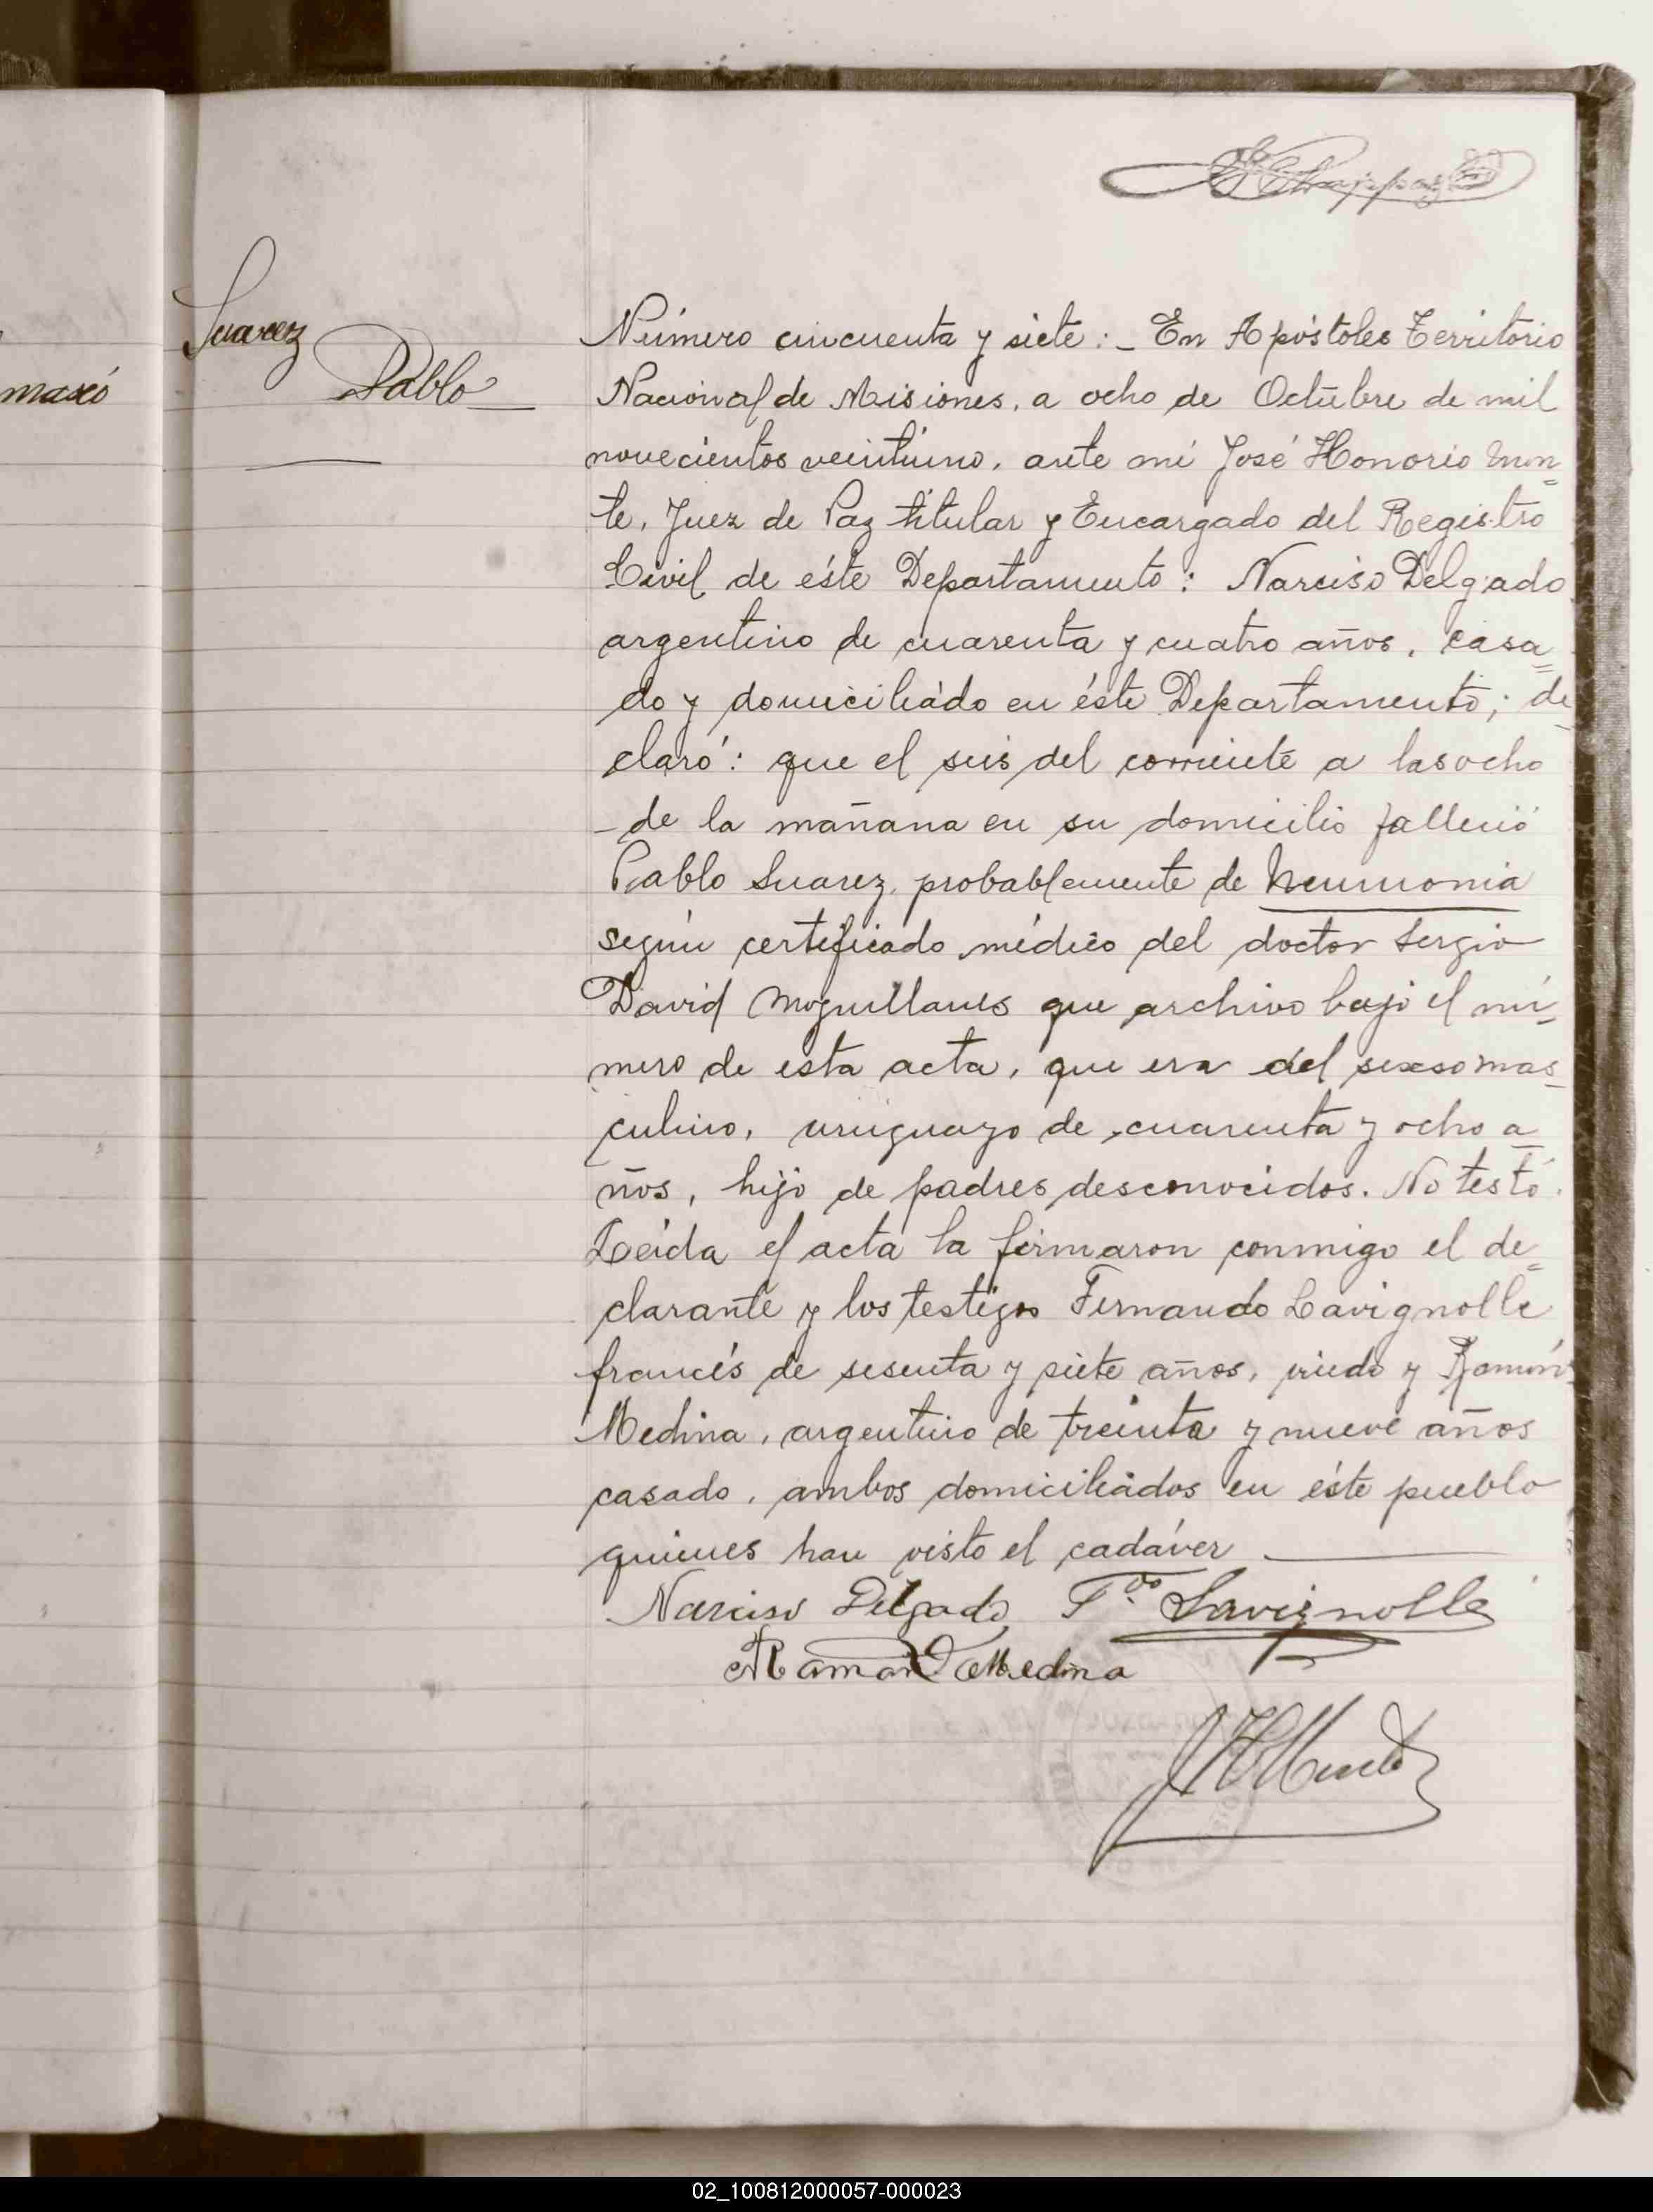 maxó
Suarez
Pablo
Número cincuenta y siete: _ En Apóstoles Territorio
Nacional de Misiones, a ocho de Octubre de mil
novecientos veintiuno, ante mi José Honorio Mon=
te, Juez de Paz titular y Encargado del Registro
Civil de éste Departamento: Narciso Delgado
argentino de cuarenta y cuatro años, casa=
do y domiciliado en éste Departamento; de=
claró: que el seis del corriente a las ocho
de la mañana en su domicilio falleció
Pablo Suarez, probablemente de Neumonia
según certificado médico del doctor Sergio
David que archivo bajo el nú=
mero de esta acta, que era del sexso mas=
culino, uruguayo de cuarenta y ocho a=
ños, hijo de padres desconocidos. No testó.
Leída el acta la firmaron conmigo el de=
clarante y los testigos Fernando Lavignolle
francés de sesenta y siete años, viudo y Ramón
Medina, argentino de treinta y nueve años
casado, ambos domiciliados en éste pueblo
quienes han visto el cadáver
Narciso Delgado F.do Lavignolle
Ramon Medina
02_100812000057-000023